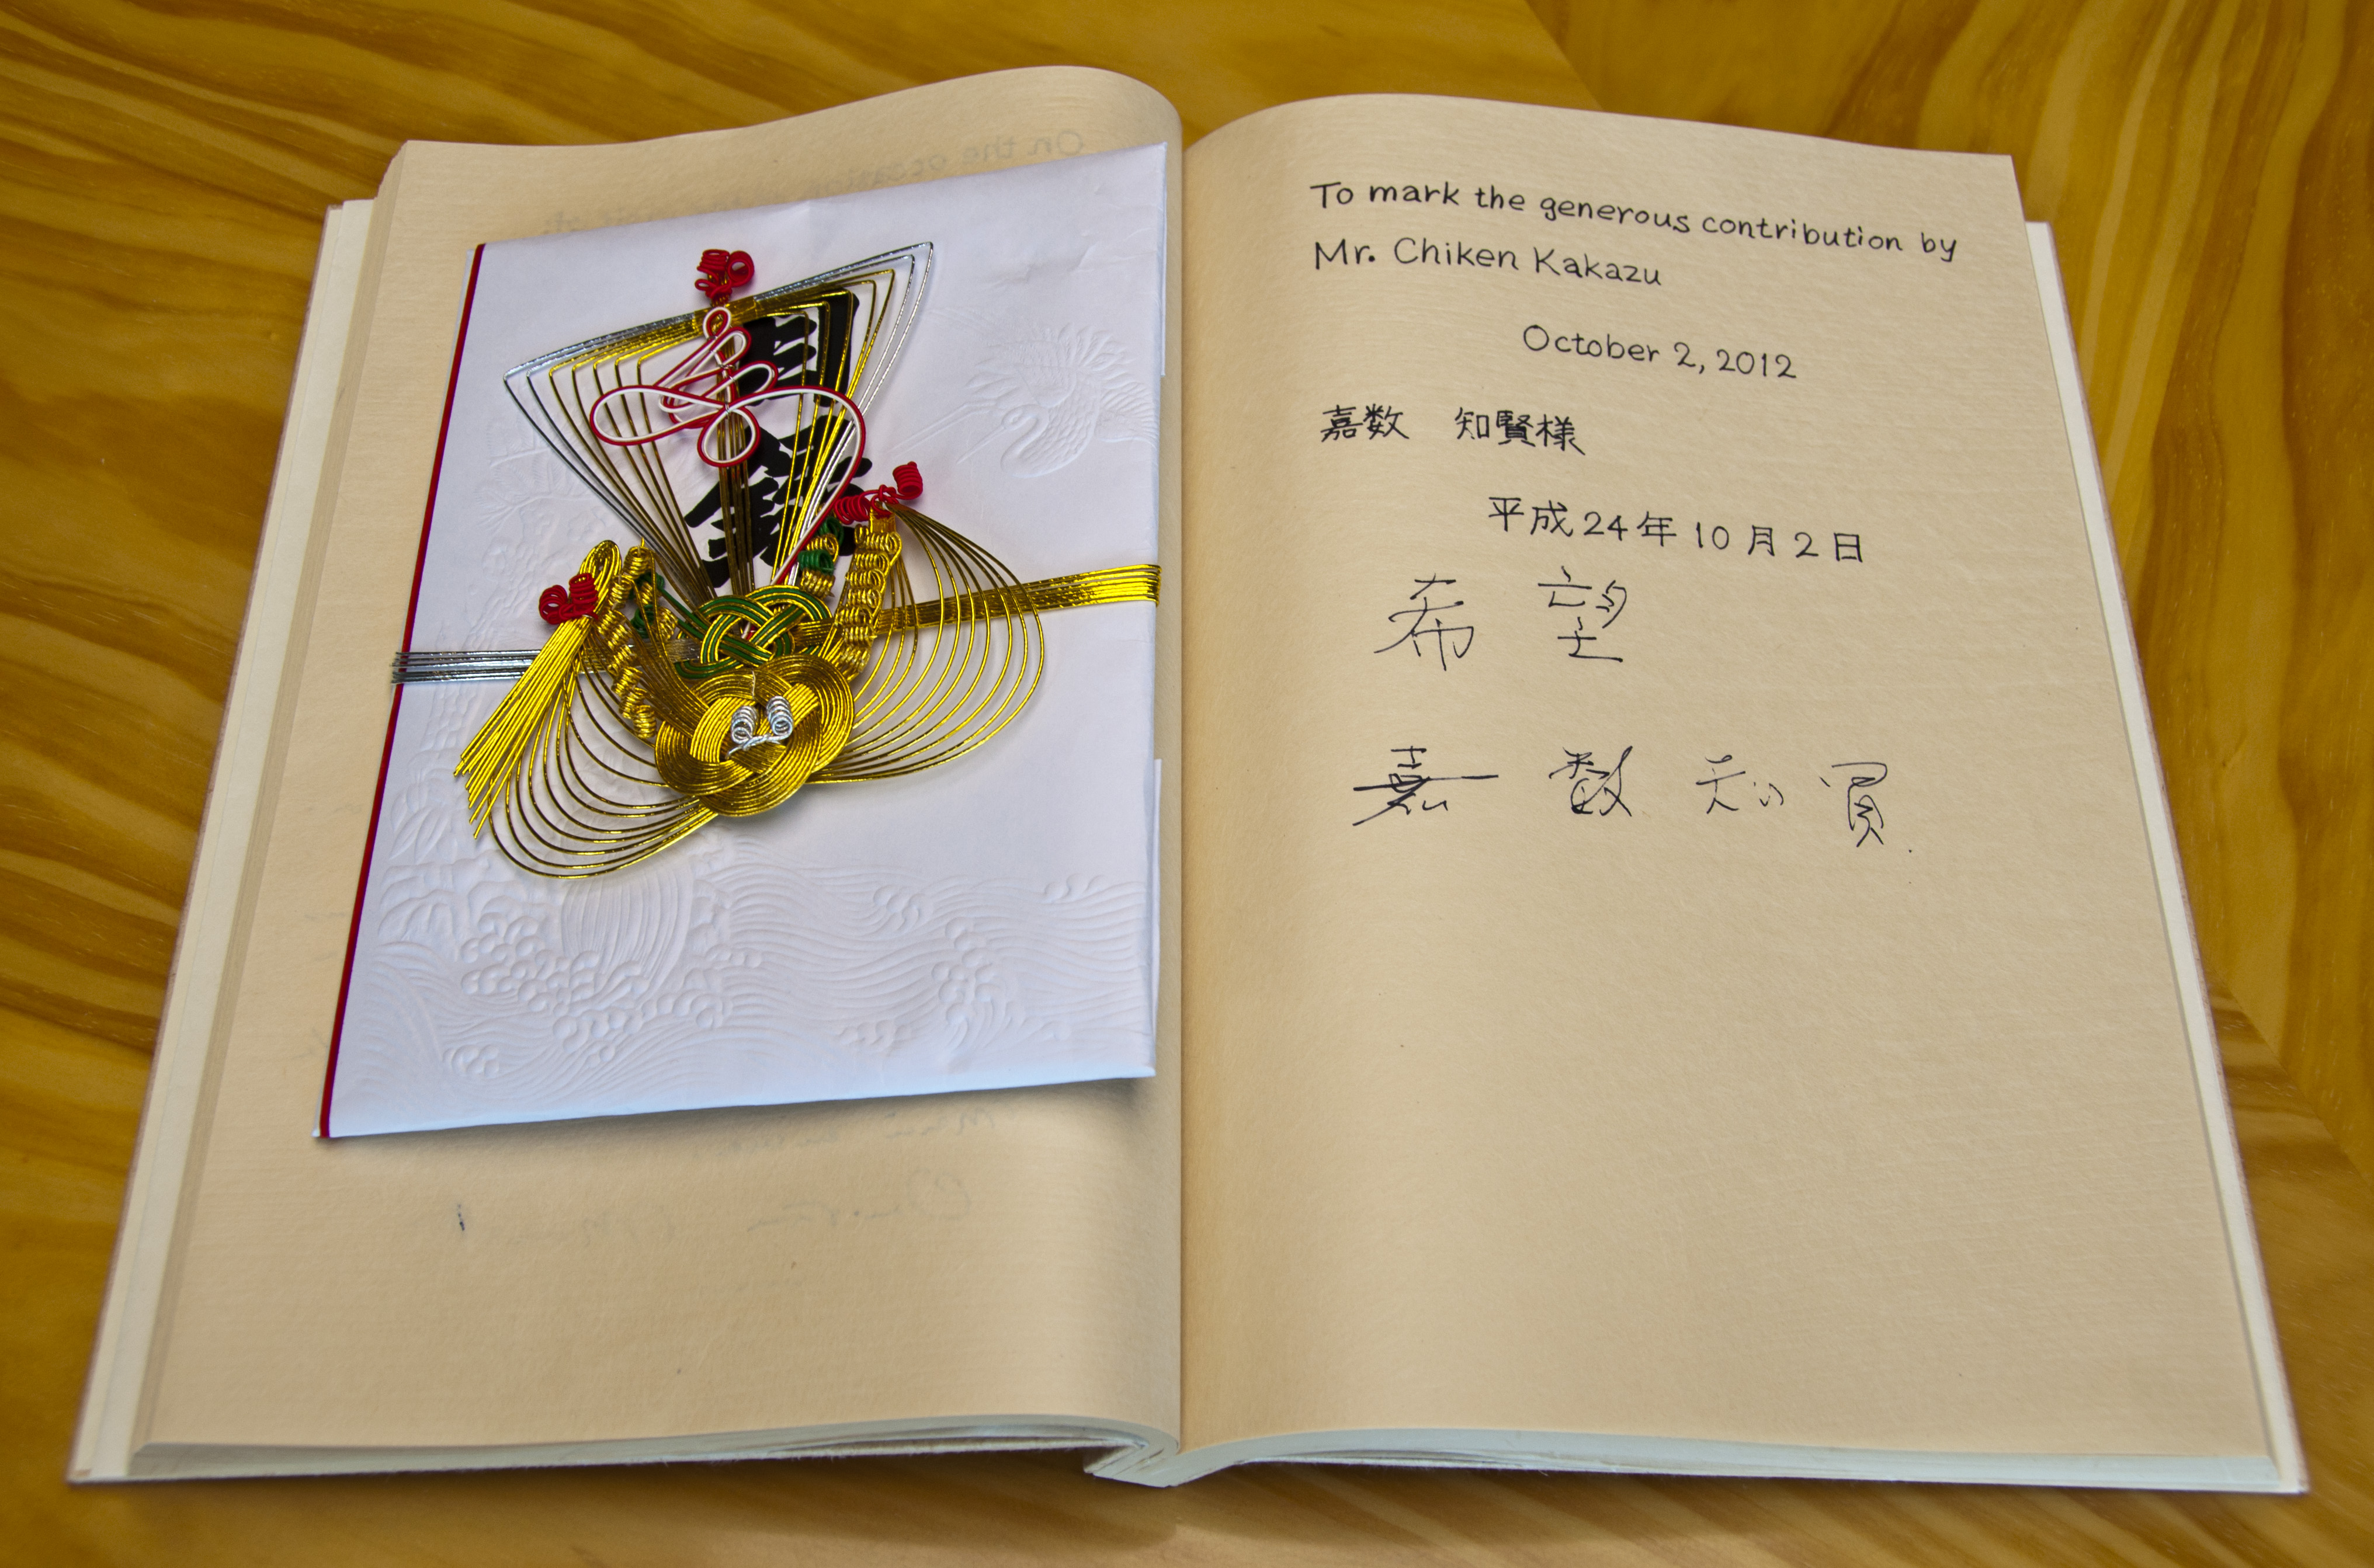 On the occasion
To mark the generous contribution by
Mr. Chiken Kakazu
October 2, 2012
嘉数 知賢様
平成24年10月2日
希望
嘉数知賢